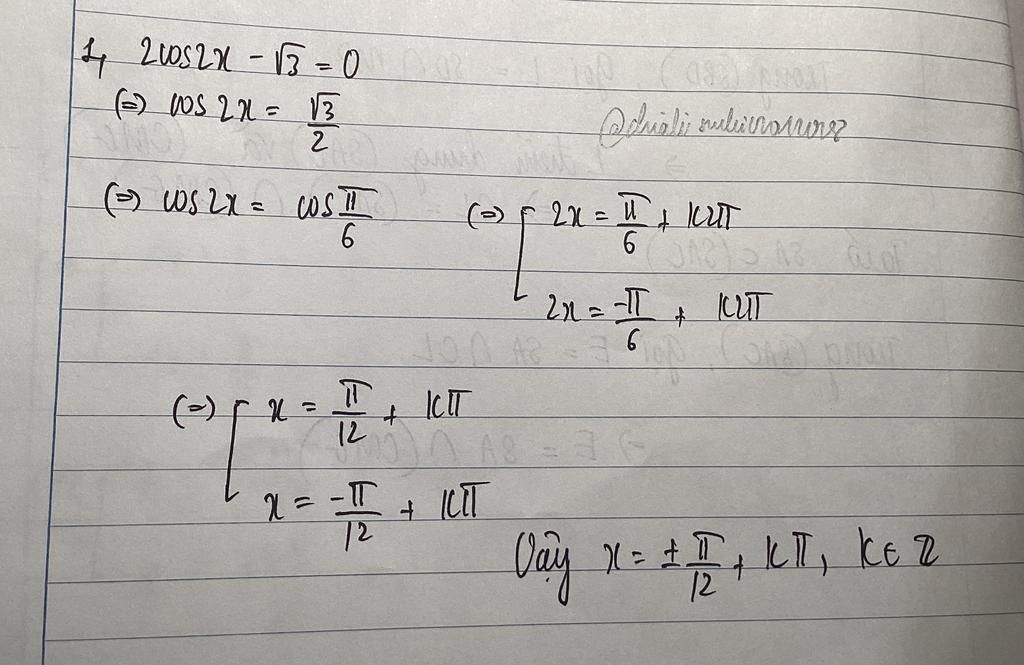 1, 2cos2x - √3 = 0
(=) cos 2x = √3/2
(=) cos 2x = cos π/6 (=) [ 2x = π/6 + k2π
2x = -π/6 + k2π
(=) [ x = π/12 + kπ
x = -π/12 + kπ
Vậy x = ± π/12 + kπ, k∈ ℤ